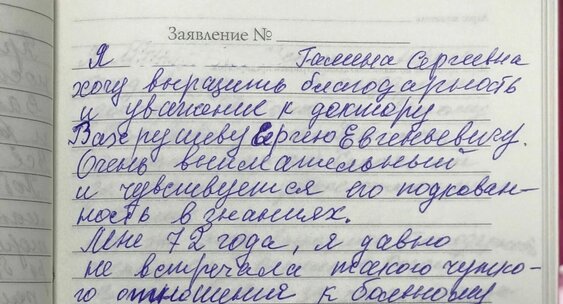 Заявление №
Я Галина Сергеевна
хочу выразить благодарность
и уважение к доктору
Вахрушеву Сергею Евгеньевичу.
Очень внимательный
и чувствуется его подкован-
ность в знаниях.
Мне 72 года, я давно
не встречала такого чутко-
го отношения к больному